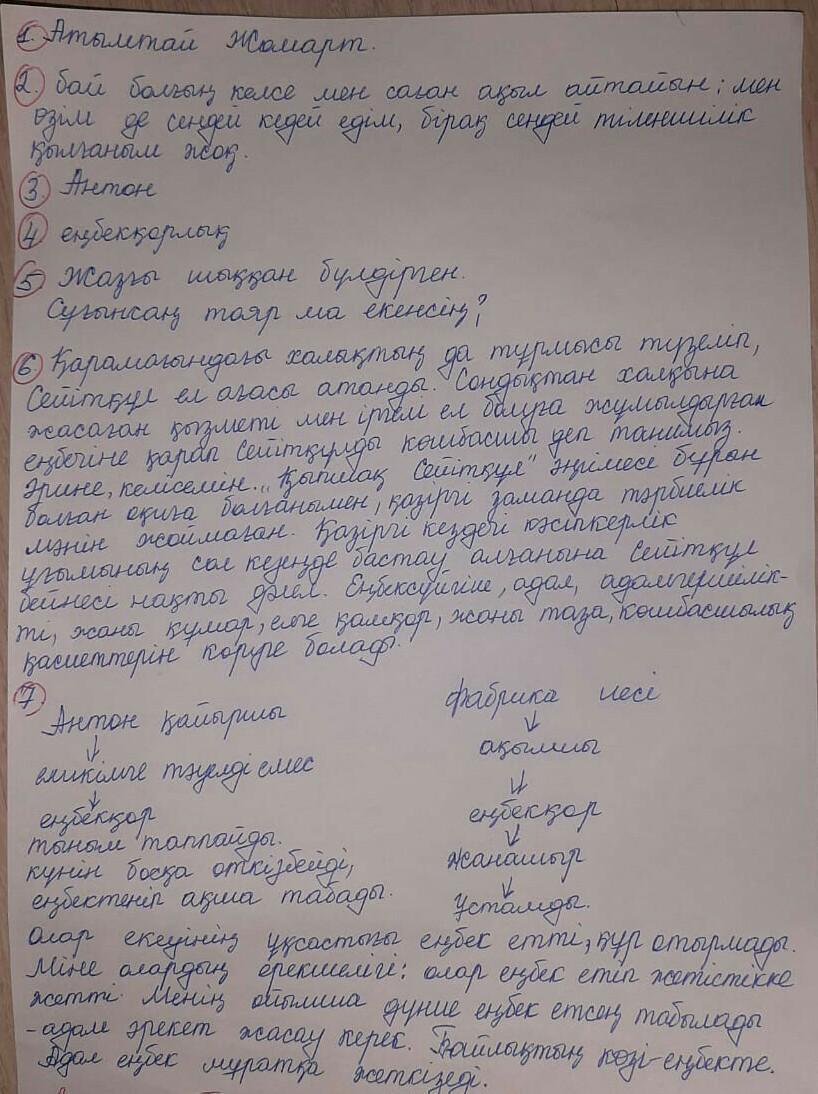 1. Атымтай Жомарт.
2. бай болғың келсе мен саған ақыл айтайын: мен
өзім де сендей кедей едім, бірақ сендей тіленшілік
қылғаным жоқ.
3. Антон
4 еңбекқорлық
5 Жазғы шыққан бүлдірген.
Сұғынсаң таяр ма екенсің?
6 Қарамағындағы халықтың да тұрмысы түзеліп,
Сейітқұл ел ағасы атанды. Сондықтан халқына
жасаған қызметі мен іргелі ел болуға жұмылдырған
еңбегіне қарап Сейітқұлды көшбасшы деп танимыз.
Әрине, келісемін. „Қыпшақ Сейітқұл" әңгімесі бұрын
болған оқиға болғанымен, қазіргі заманда тәрбиелік
мәнін жоймаған. Қазіргі кездегі кәсіпкерлік
ұғымының сол кезеңде бастау алғанына Сейітқұл
бейнесі нақты дәлел. Еңбексүйгіш, адал, адамгершілік-
ті, жаны құмар, елге қамқор, жаны таза, көшбасшылық
қасиеттерін көруге болады.
7
Антон қайыршы
↓
ешкімге тәуелді емес
↓
еңбекқор
тыным таппайды.
күнін босқа өткізбейді,
еңбектеніп ақша табады.
Фабрика иесі
↓
ақылшы
↓
еңбекқор
↓
Жанашыр
↓
Ұстамды.
Олар екеуінің ұқсастығы еңбек етті, құр отырмады.
Міне олардың ерекшелігі: олар еңбек етіп жетістікке
жетті. Менің ойымша дүние еңбек етсең табылады
-адам әрекет жасау керек. Байлықтың көзі-еңбекте.
Адал еңбек мұратқа жеткізеді.